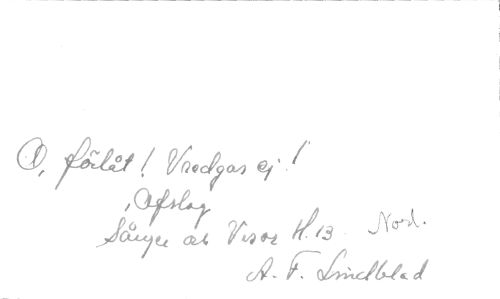 O, förlåt! Vredgas ej!
, Afslag
Sånger och Visor H. 13. Nord.
A. F. Lindblad